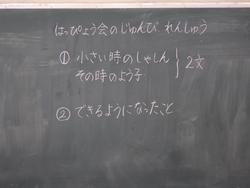 はっぴょう会のじゅんび れんしゅう
① 小さい時のしゃしん
その時のよう子
2文
② できるようになったこと